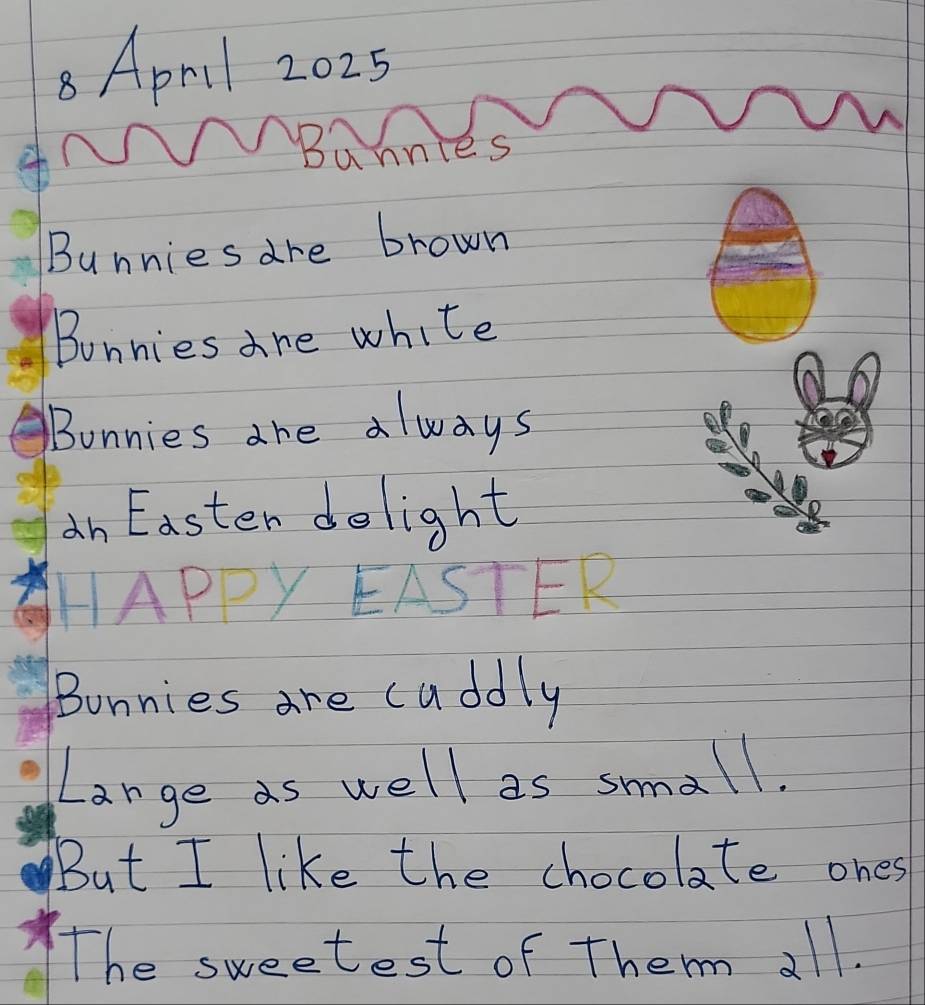 8 April 2025
Bunnies
Bunnies are brown
Bunnies are white
Bunnies are always
an Easter delight
HAPPY EASTER
Bunnies are cuddly
Large as well as small.
But I like the chocolate ones
The sweetest of Them all.